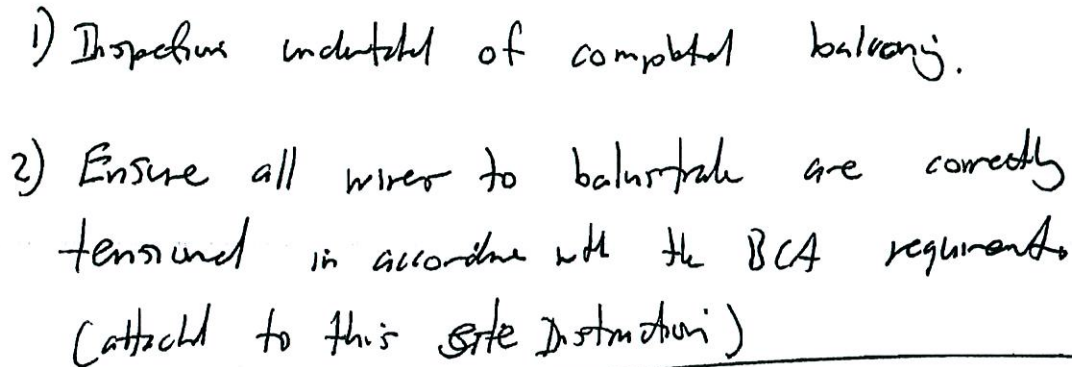 1) Inspection undertaken of completed balcony.
2) Ensure all wires to balustrade are correctly
tensioned in accordance with the BCA requirements
(attached to this site Instruction)